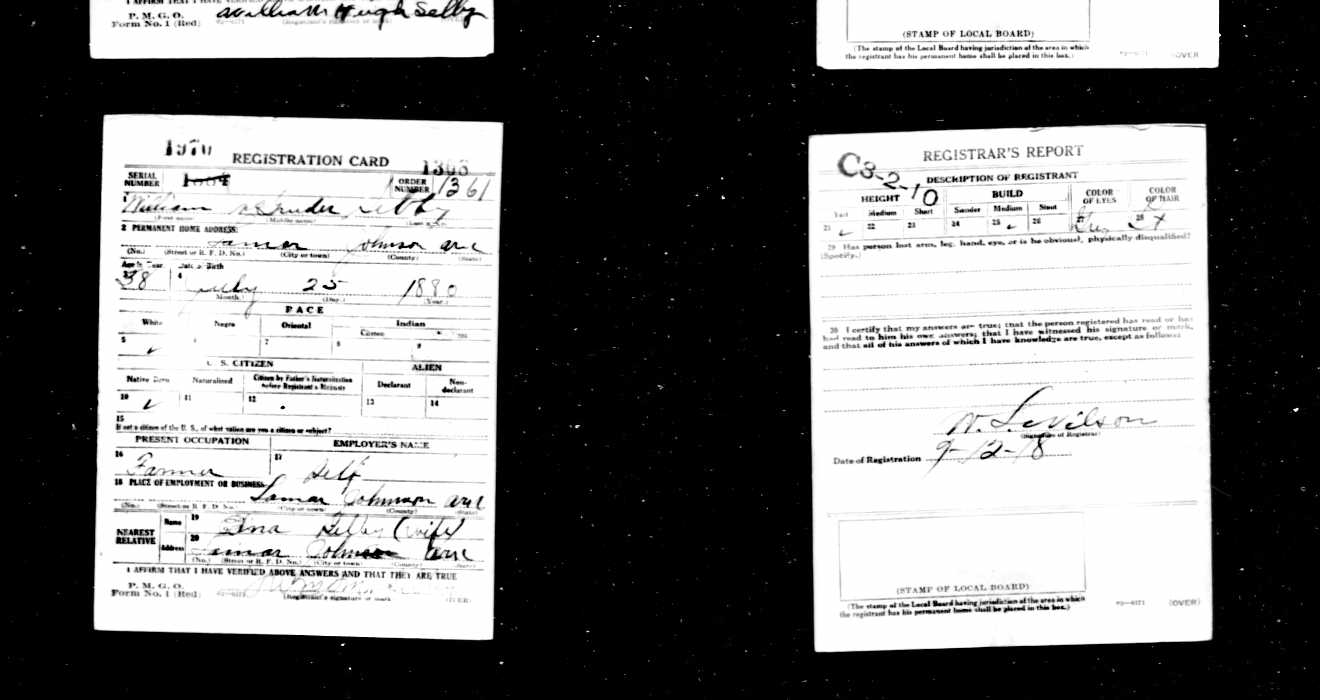 P. M. G. O.
Form No. 1 (Red) William Hugh Selby
(STAMP OF LOCAL BOARD)
(The stamp of the Local Board having jurisdiction of the area in which
the registrant has his permanent home shall be placed in this box.)
(OVER)
1970
REGISTRATION CARD
SERIAL NUMBER
ORDER NUMBER 1361
1 William
(First name) (Middle name)
2 PERMANENT HOME ADDRESS:
Lamar Johnson ark
(No.) (Street or R. F. D. No.) (City or town) (County) (State)
Age in Years Date of Birth
38 July 25 1880
(Month.) (Day.) (Year.)
RACE
White Negro Oriental Indian
5 7 8 9
U. S. CITIZEN ALIEN
Native Born Naturalized Citizen by Father's Naturalization before Registrant's Majority Declarant Non-declarant
10 11 12 13 14
15
If not a citizen of the U. S., of what nation are you a citizen or subject?
PRESENT OCCUPATION EMPLOYER'S NAME
16 Farmer 17 Self
18 PLACE OF EMPLOYMENT OR BUSINESS:
Lamar Johnson ark
(No.) (Street or R. F. D. No.) (City or town) (County) (State)
NEAREST RELATIVE
Name 19 Selby (wife)
Address 20 Lamar Johnson ark
(No.) (Street or R. F. D. No.) (City or town) (County) (State)
I AFFIRM THAT I HAVE VERIFIED ABOVE ANSWERS AND THAT THEY ARE TRUE
P. M. G. O.
Form No. 1 (Red) (Registrant's signature or mark) (OVER)
REGISTRAR'S REPORT
C3-2-10
DESCRIPTION OF REGISTRANT
HEIGHT BUILD COLOR OF EYES COLOR OF HAIR
Tall Medium Short Slender Medium Stout
21 22 23 24 25 26 27 28
29 Has person lost arm, leg, hand, eye, or is he obviously physically disqualified?
(Specify.)
30 I certify that my answers are true; that the person registered has read or has
had read to him his own answers; that I have witnessed his signature or mark,
and that all of his answers of which I have knowledge are true, except as follows:
(Signature of Registrar)
Date of Registration 9-12-18
(STAMP OF LOCAL BOARD)
(The stamp of the Local Board having jurisdiction of the area in which
the registrant has his permanent home shall be placed in this box.)
(OVER)